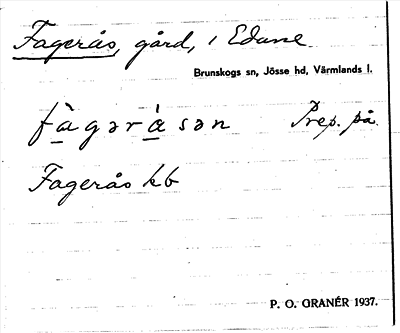 Fagerås, gård, i Edane
Brunskogs sn, Jösse hd, Värmlands l.
fàgərá̀sən Prep. på.
Fagerås kb
P. O. GRANÉR 1937.